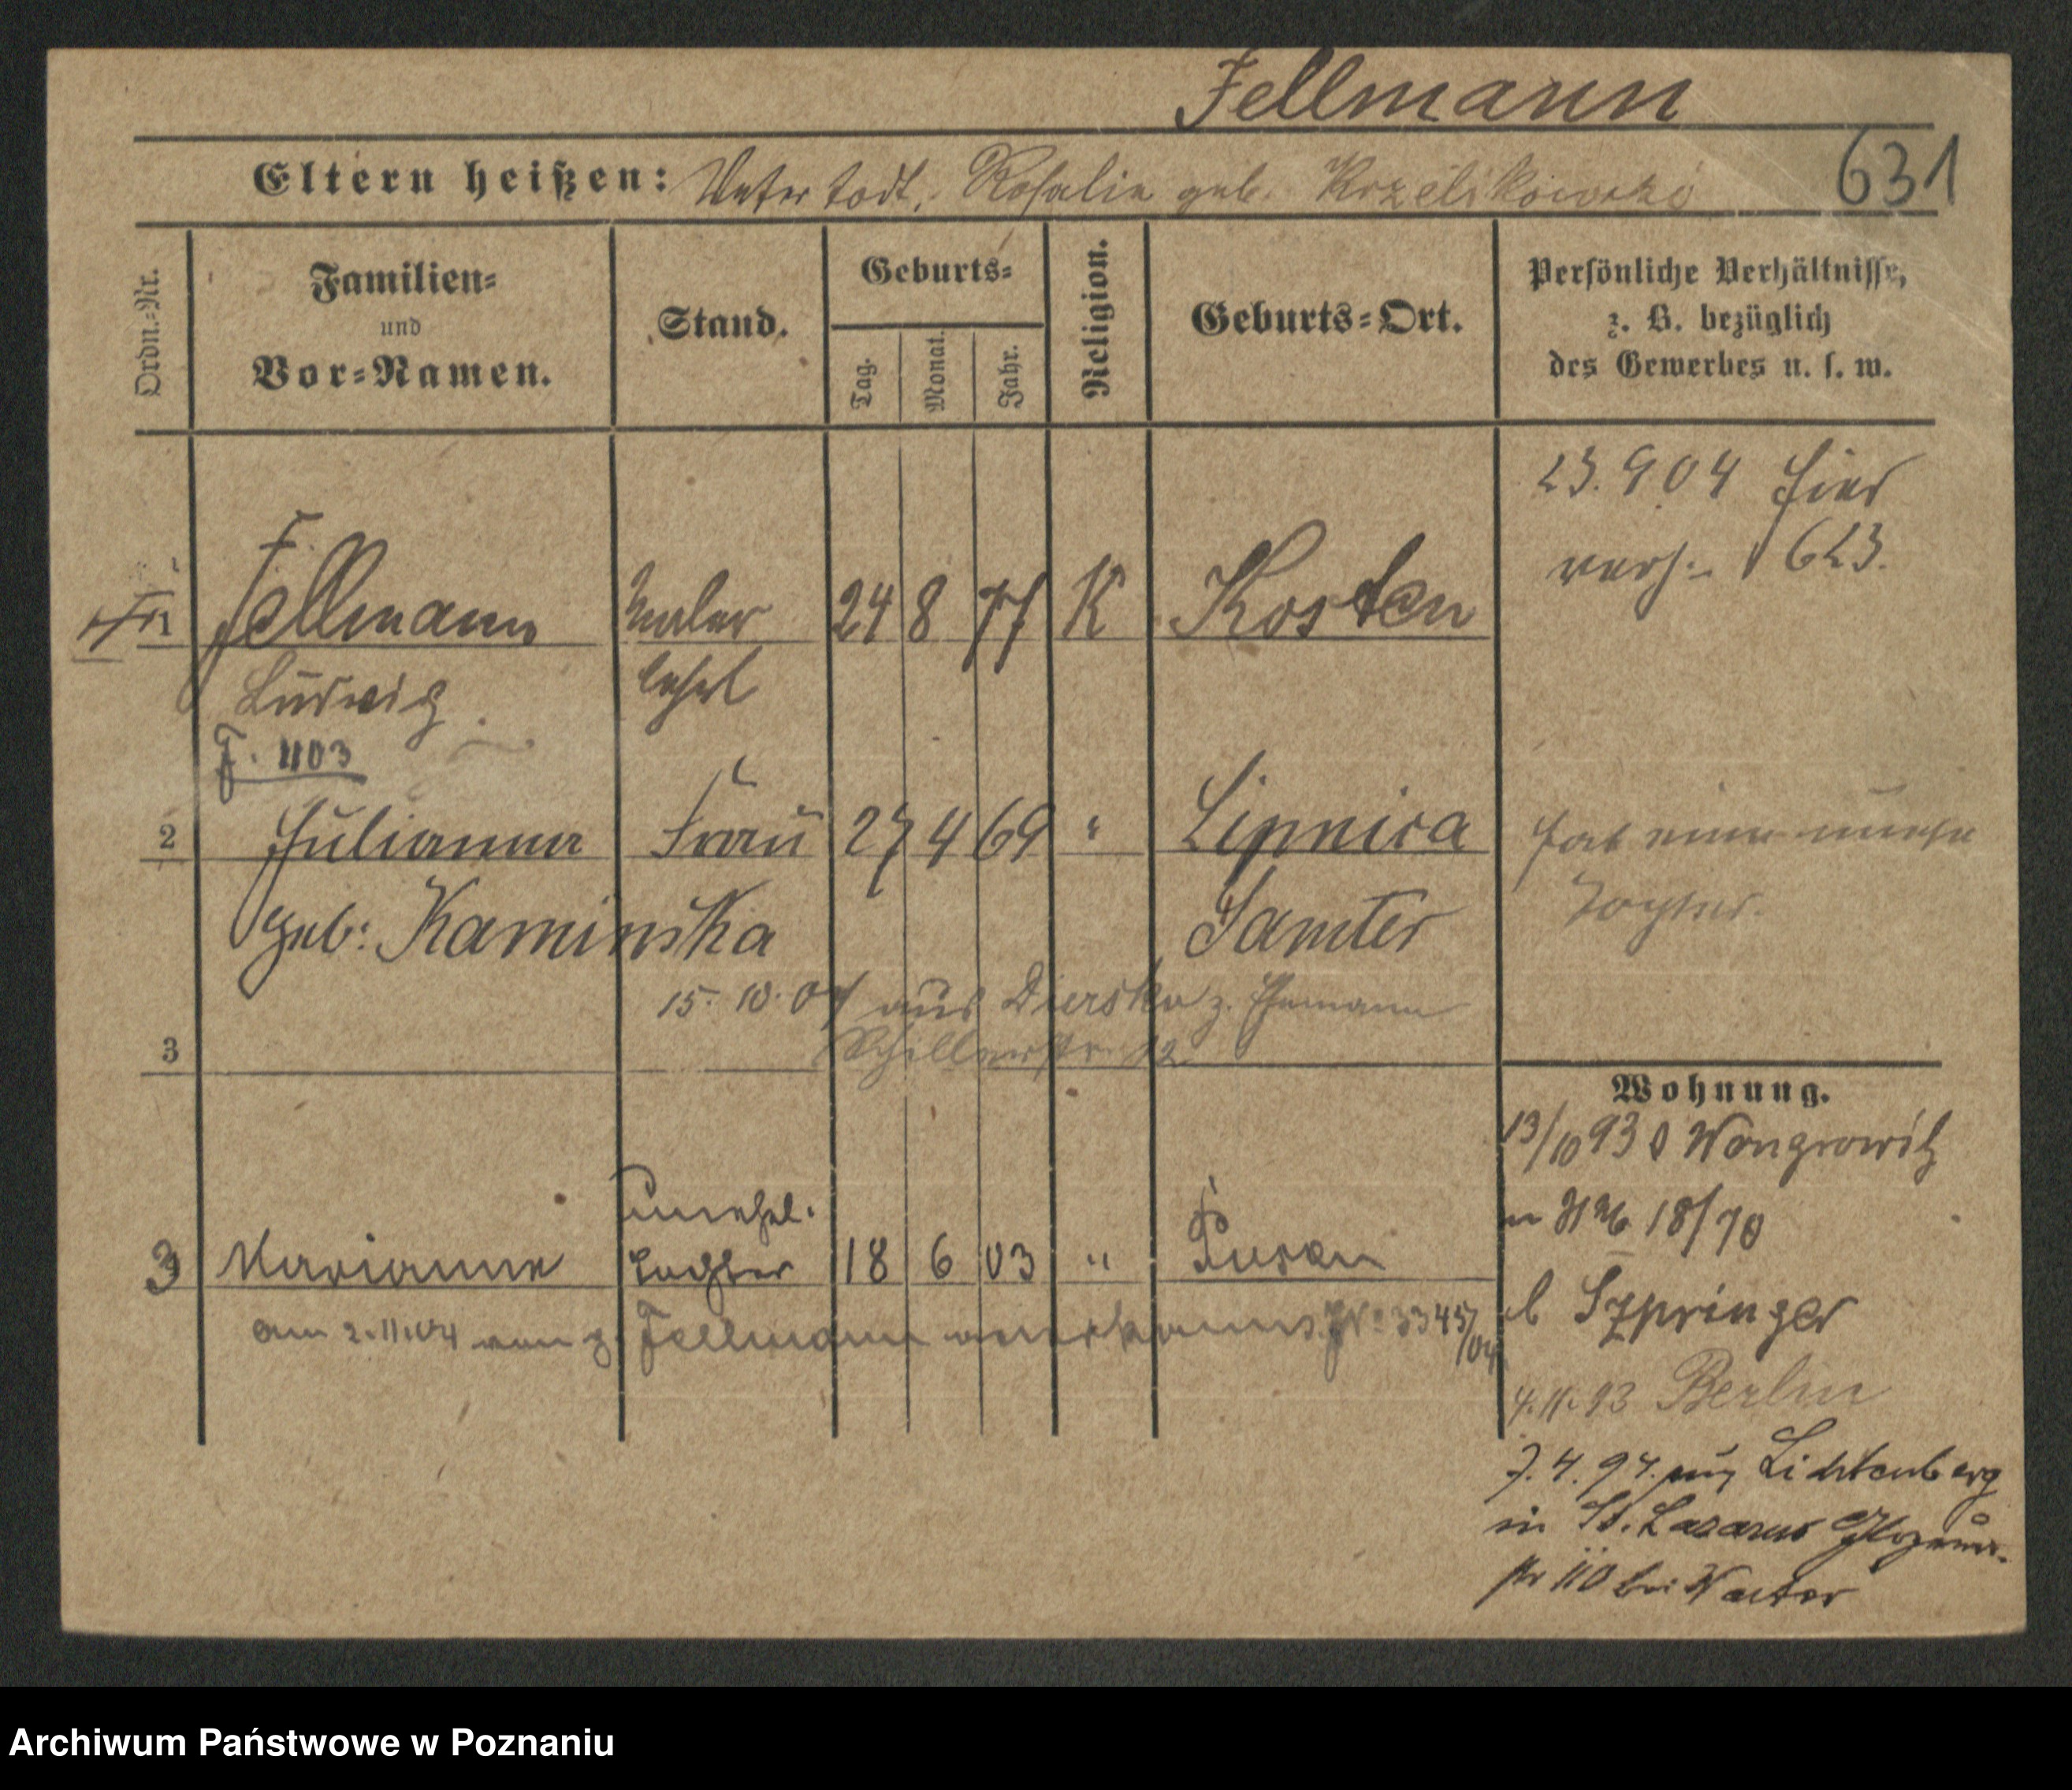 Fellmann
631
Eltern heißen: Vater todt, Rosalie geb. Krzelikowska
Ordn.-Nr.
Familien-
und
Vor-Namen.
Stand.
Geburts-
Tag.
Monat.
Jahr.
Religion.
Geburts-Ort.
Persönliche Verhältnisse,
z. B. bezüglich
des Gewerbes u. s. w.
23. 9 04 hier
verh. 623.
1 Fellmann Maler 24 8 77 K Kosten
Ludwig lehrl
F. 403
2 Julianna Frau 27 4 69 " Lipnica hat eine unehe
geb: Kaminska Samter Tochter.
15. 10. 04 aus Dierska z. Ehemann
3 Schillerstr 12
3 Marianne unehel. Tochter 18 6 03 " Posen
am 2.11.04 von Fellmann anerkannt. Nr. 3345/04
Wohnung.
13/10 93 Wongrowitz
18/70
b Szpringer
4.11.93 Berlin
7.4.94. aus Lichtenberg
in St. Lazarus Glogauer-
str 110 bei Vater
Archiwum Państwowe w Poznaniu